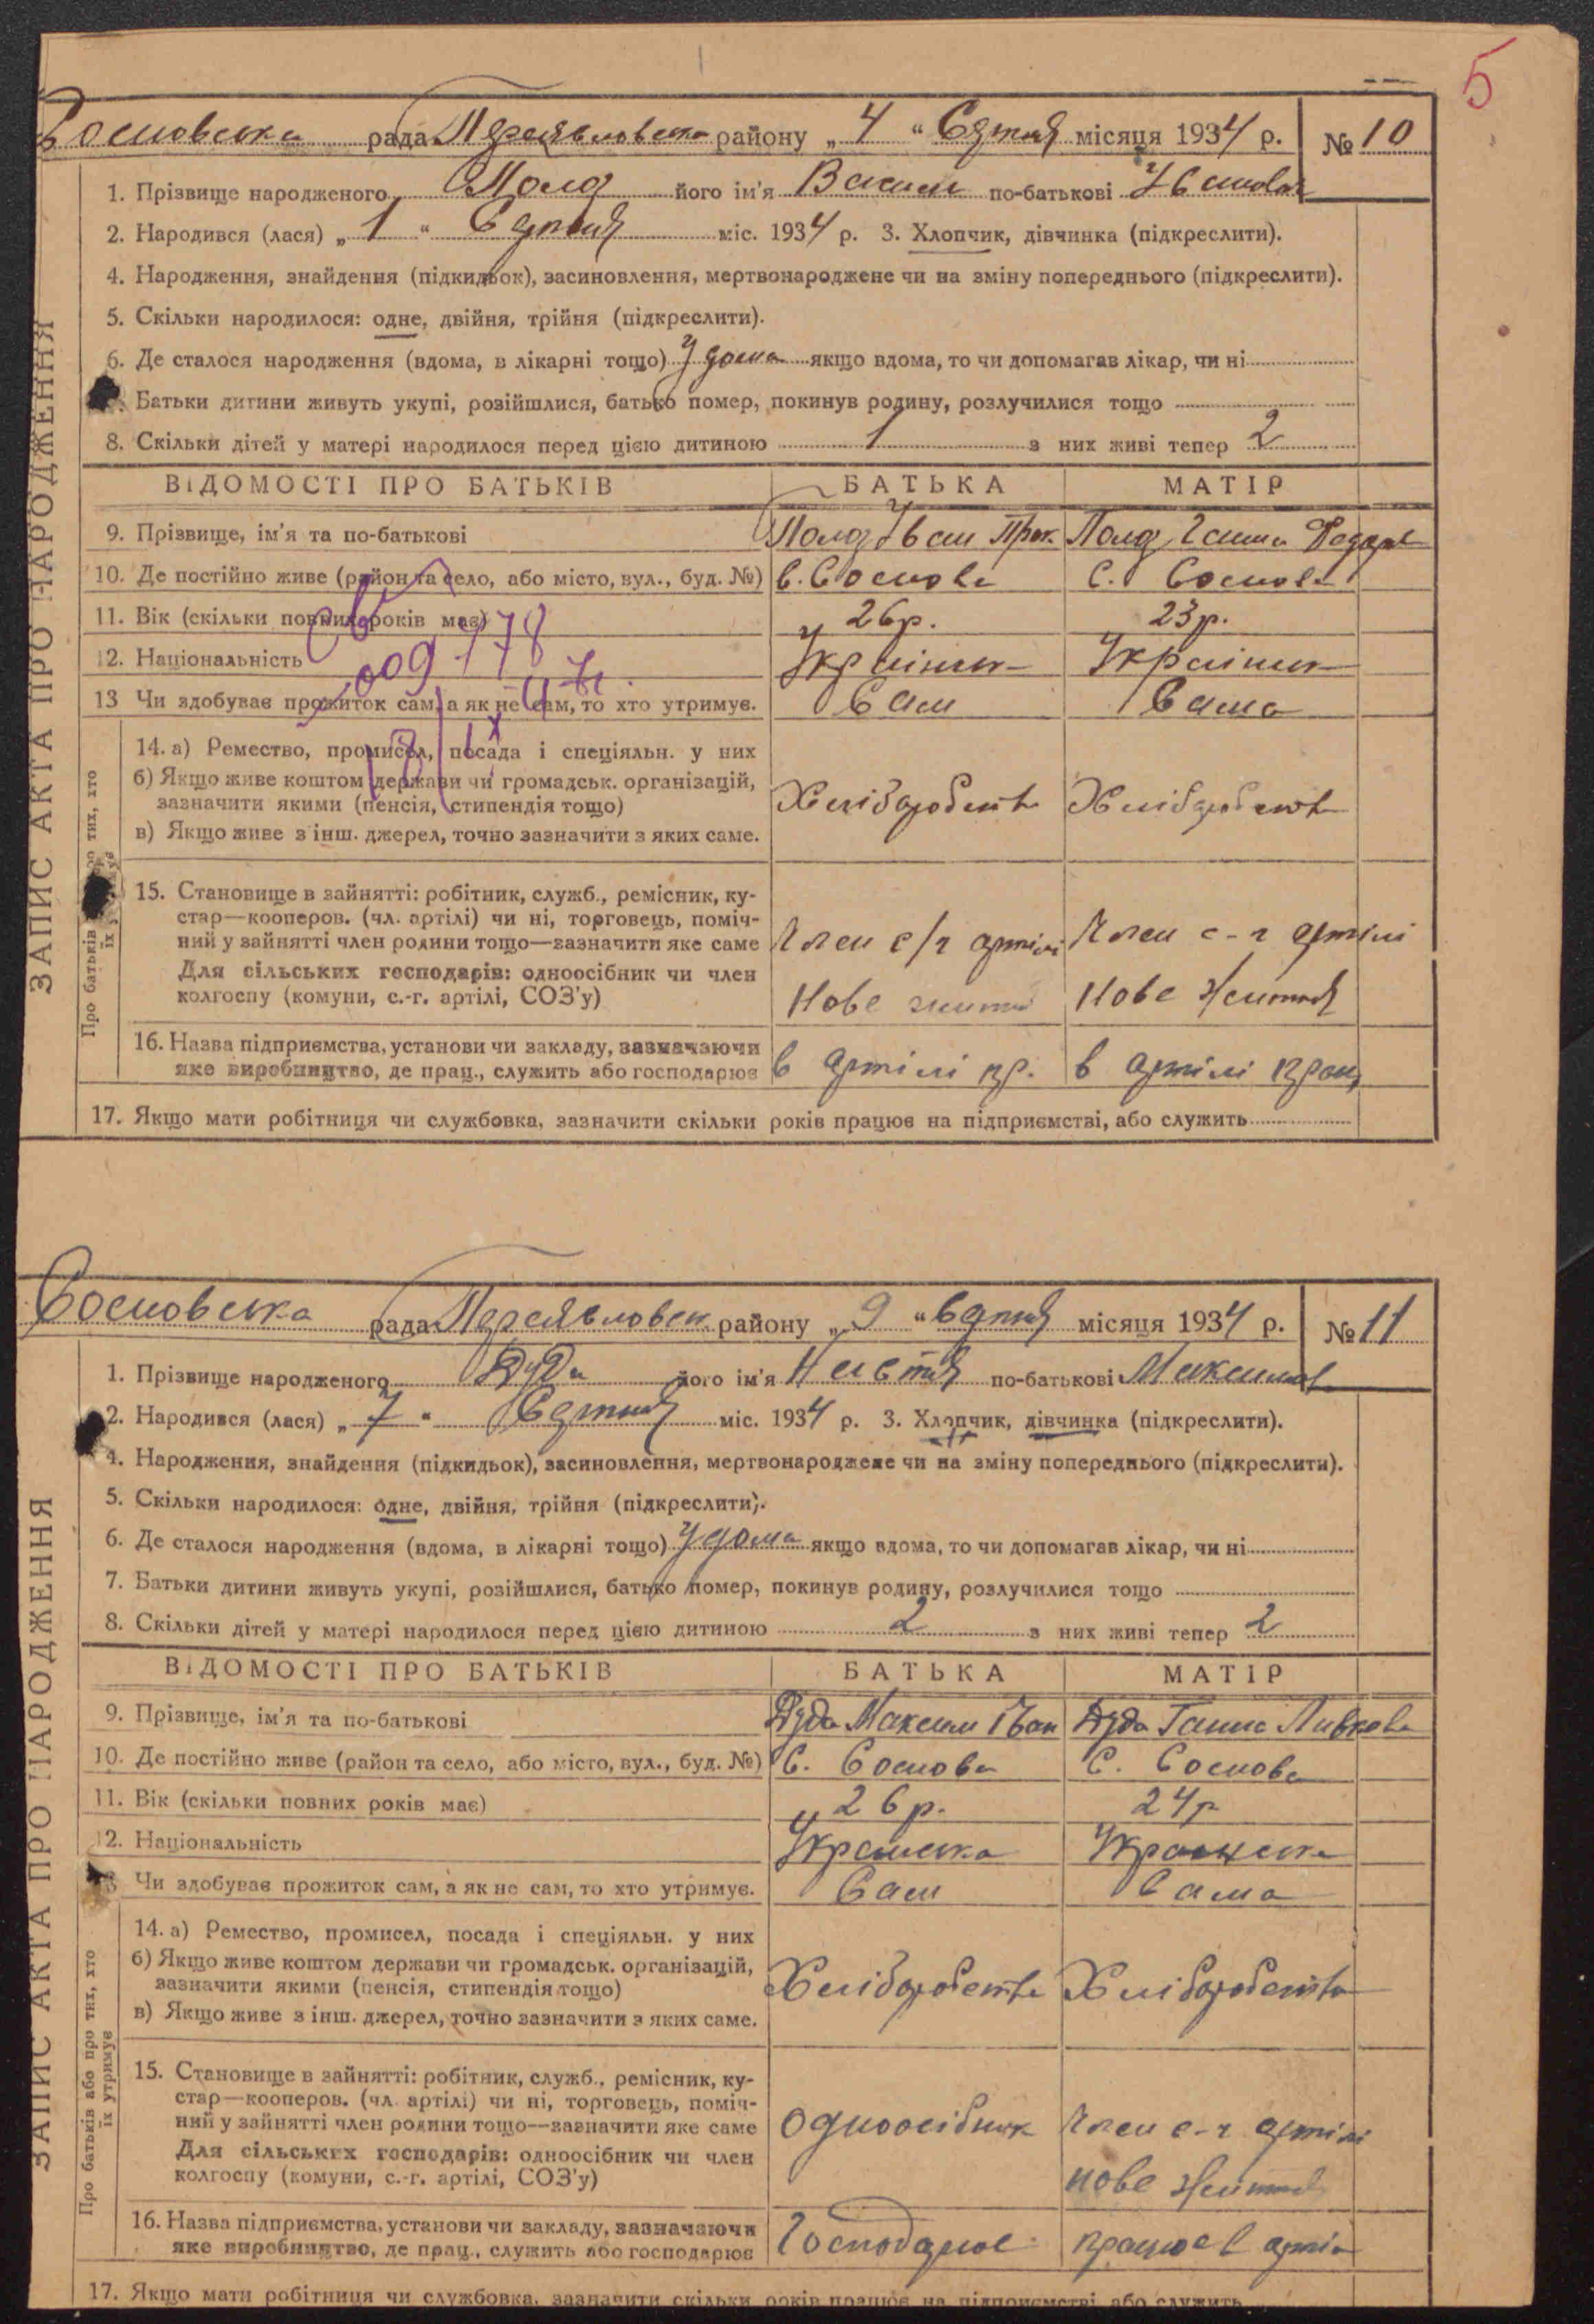 5
Сосновська рада Переяславська району „ 4 “ Січня місяця 1934 р. № 10
1. Прізвище народженого його ім'я Василь по-батькові
2. Народився (лася) „ 1 “ Січня міс. 1934 р. 3. Хлопчик, дівчинка (підкреслити).
4. Народження, знайдення (підкидьок), засиновлення, мертвонароджене чи на зміну попереднього (підкреслити).
5. Скільки народилося: одне, двійня, трійня (підкреслити).
6. Де сталося народження (вдома, в лікарні тощо) У дома якщо вдома, то чи допомагав лікар, чи ні
Батьки дитини живуть укупі, розійшлися, батько помер, покинув родину, розлучилися тощо
8. Скільки дітей у матері народилося перед цією дитиною 1 з них живі тепер 2
ВІДОМОСТІ ПРО БАТЬКІВ БАТЬКА МАТІР
9. Прізвище, ім'я та по-батькові Іван Прок.
10. Де постійно живе (район та село, або місто, вул., буд. №) с. Соснова С. Соснова
11. Вік (скільки повних років має) 26р. 23р.
12. Національність
13 Чи здобуває прожиток сам, а як не сам, то хто утримує. Сам Сама
14. а) Ремество, промисел, посада і спеціяльн. у них
б) Якщо живе коштом держави чи громадськ. організацій,
зазначити якими (пенсія, стипендія тощо) Хліборобств Хліборобств
в) Якщо живе з інш. джерел, точно зазначити з яких саме.
15. Становище в зайнятті: робітник, служб., ремісник, ку-
стар—кооперов. (чл. артілі) чи ні, торговець, поміч-
ний у зайнятті член родини тощо—зазначити яке саме Член с/г артілі Член с-г артілі
Для сільських господарів: одноосібник чи член
колгоспу (комуни, с.-г. артілі, СОЗ'у) Нове життя Нове Життя
16. Назва підприємства, установи чи закладу, зазначаючи
яке виробництво, де прац., служить або господарює в артілі пр. в артілі прац
17. Якщо мати робітниця чи службовка, зазначити скільки років працює на підприємстві, або служить
ЗАПИС АКТА ПРО НАРОДЖЕННЯ
Сосновська рада Переяславськ району „ 9 “ Січня місяця 1934 р. № 11
1. Прізвище народженого Дуда його ім'я Настя по-батькові Максимов
2. Народився (лася) „ 7 “ Січня міс. 1934 р. 3. Хлопчик, дівчинка (підкреслити).
4. Народження, знайдення (підкидьок), засиновлення, мертвонароджене чи на зміну попереднього (підкреслити).
5. Скільки народилося: одне, двійня, трійня (підкреслити).
6. Де сталося народження (вдома, в лікарні тощо) У дома якщо вдома, то чи допомагав лікар, чи ні
7. Батьки дитини живуть укупі, розійшлися, батько помер, покинув родину, розлучилися тощо
8. Скільки дітей у матері народилося перед цією дитиною 2 з них живі тепер 2
ВІДОМОСТІ ПРО БАТЬКІВ БАТЬКА МАТІР
9. Прізвище, ім'я та по-батькові Дуда Максим Іван Дуда Ганна
10. Де постійно живе (район та село, або місто, вул., буд. №) С. Соснова С. Соснова
11. Вік (скільки повних років має) 26р. 24р
12. Національність
Чи здобуває прожиток сам, а як не сам, то хто утримує. Сам Сама
14. а) Ремество, промисел, посада і спеціяльн. у них
б) Якщо живе коштом держави чи громадськ. організацій,
зазначити якими (пенсія, стипендія тощо) Хліборобств Хліборобств
в) Якщо живе з інш. джерел, точно зазначити з яких саме.
15. Становище в зайнятті: робітник, служб., ремісник, ку-
стар—кооперов. (чл. артілі) чи ні, торговець, поміч-
ний у зайнятті член родини тощо—зазначити яке саме Одноосібник Член с-г артілі
Для сільських господарів: одноосібник чи член
колгоспу (комуни, с.-г. артілі, СОЗ'у) нове Життя
16. Назва підприємства, установи чи закладу, зазначаючи
яке виробництво, де прац., служить або господарює Господарює працює в артіл
17. Якщо мати робітниця чи службовка, зазначити скільки років працює на підприємстві, або служить
ЗАПИС АКТА ПРО НАРОДЖЕННЯ
Про батьків або про тих, хто
їх утримує